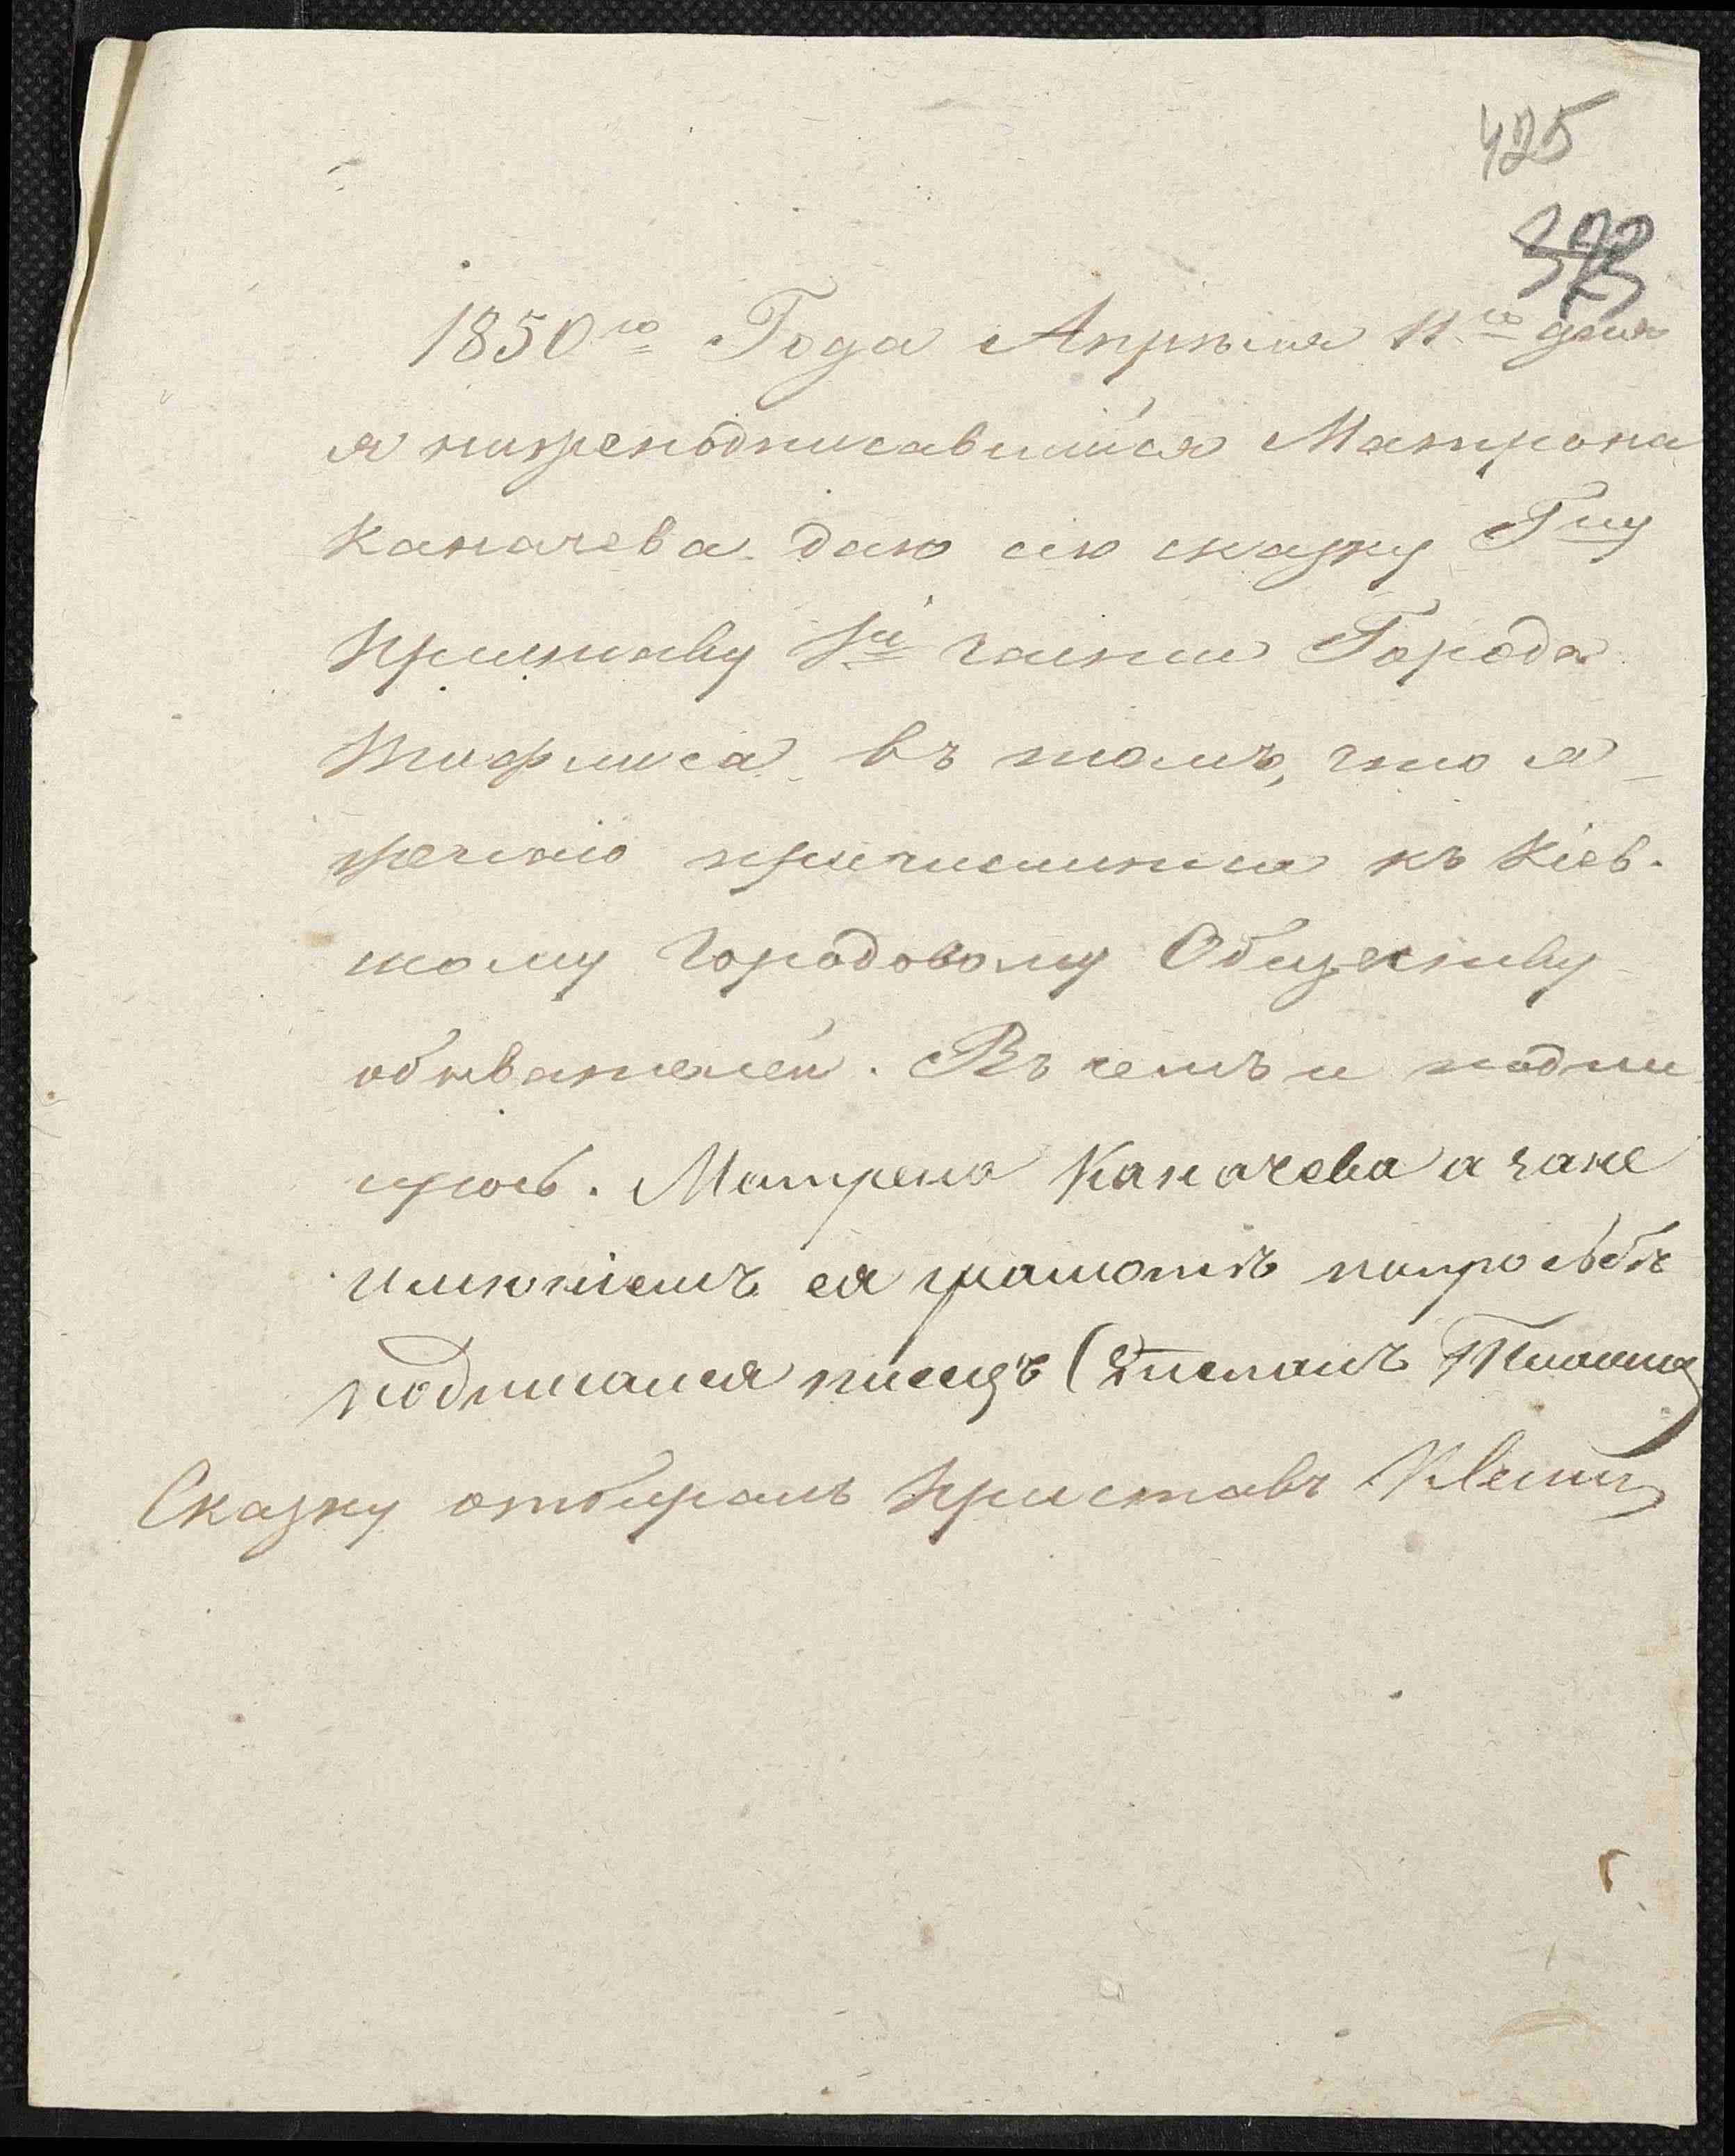 425
373
1850го Года Апрѣля 11го дня
я нижеподписавшійся Матрона
Каначева даю сію сказку Гну
Приставу 1й части Города
Тифлиса въ томъ, что я
желаю причислиться къ Кіев-
скому Городовому Обществу
обывателей. Въ чемъ и подпи
суюсь. Матрена Каначева а зане
имѣніемъ ея грамотѣ попросьбѣ
подписался писецъ Степанъ
Сказку отбиралъ Приставъ